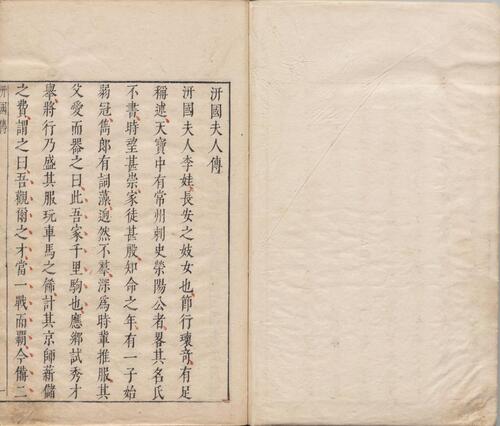 汧國夫人傳
汧國夫人李娃長安之妓女也節行瓌竒有足
稱述天寶中有常州刺史榮陽公者畧其名氏
不書時望甚崇家徒甚殷知命之年有一子始
弱冠雋郎有詞藻迥然不羣深爲時輩推服其
父愛而器之曰此吾家千里駒也應鄉試秀才
舉將行乃盛其服玩車馬之餙計其京師薪儲
之費謂之曰吾觀爾之才當一戰而霸今備二
汧國傳
一